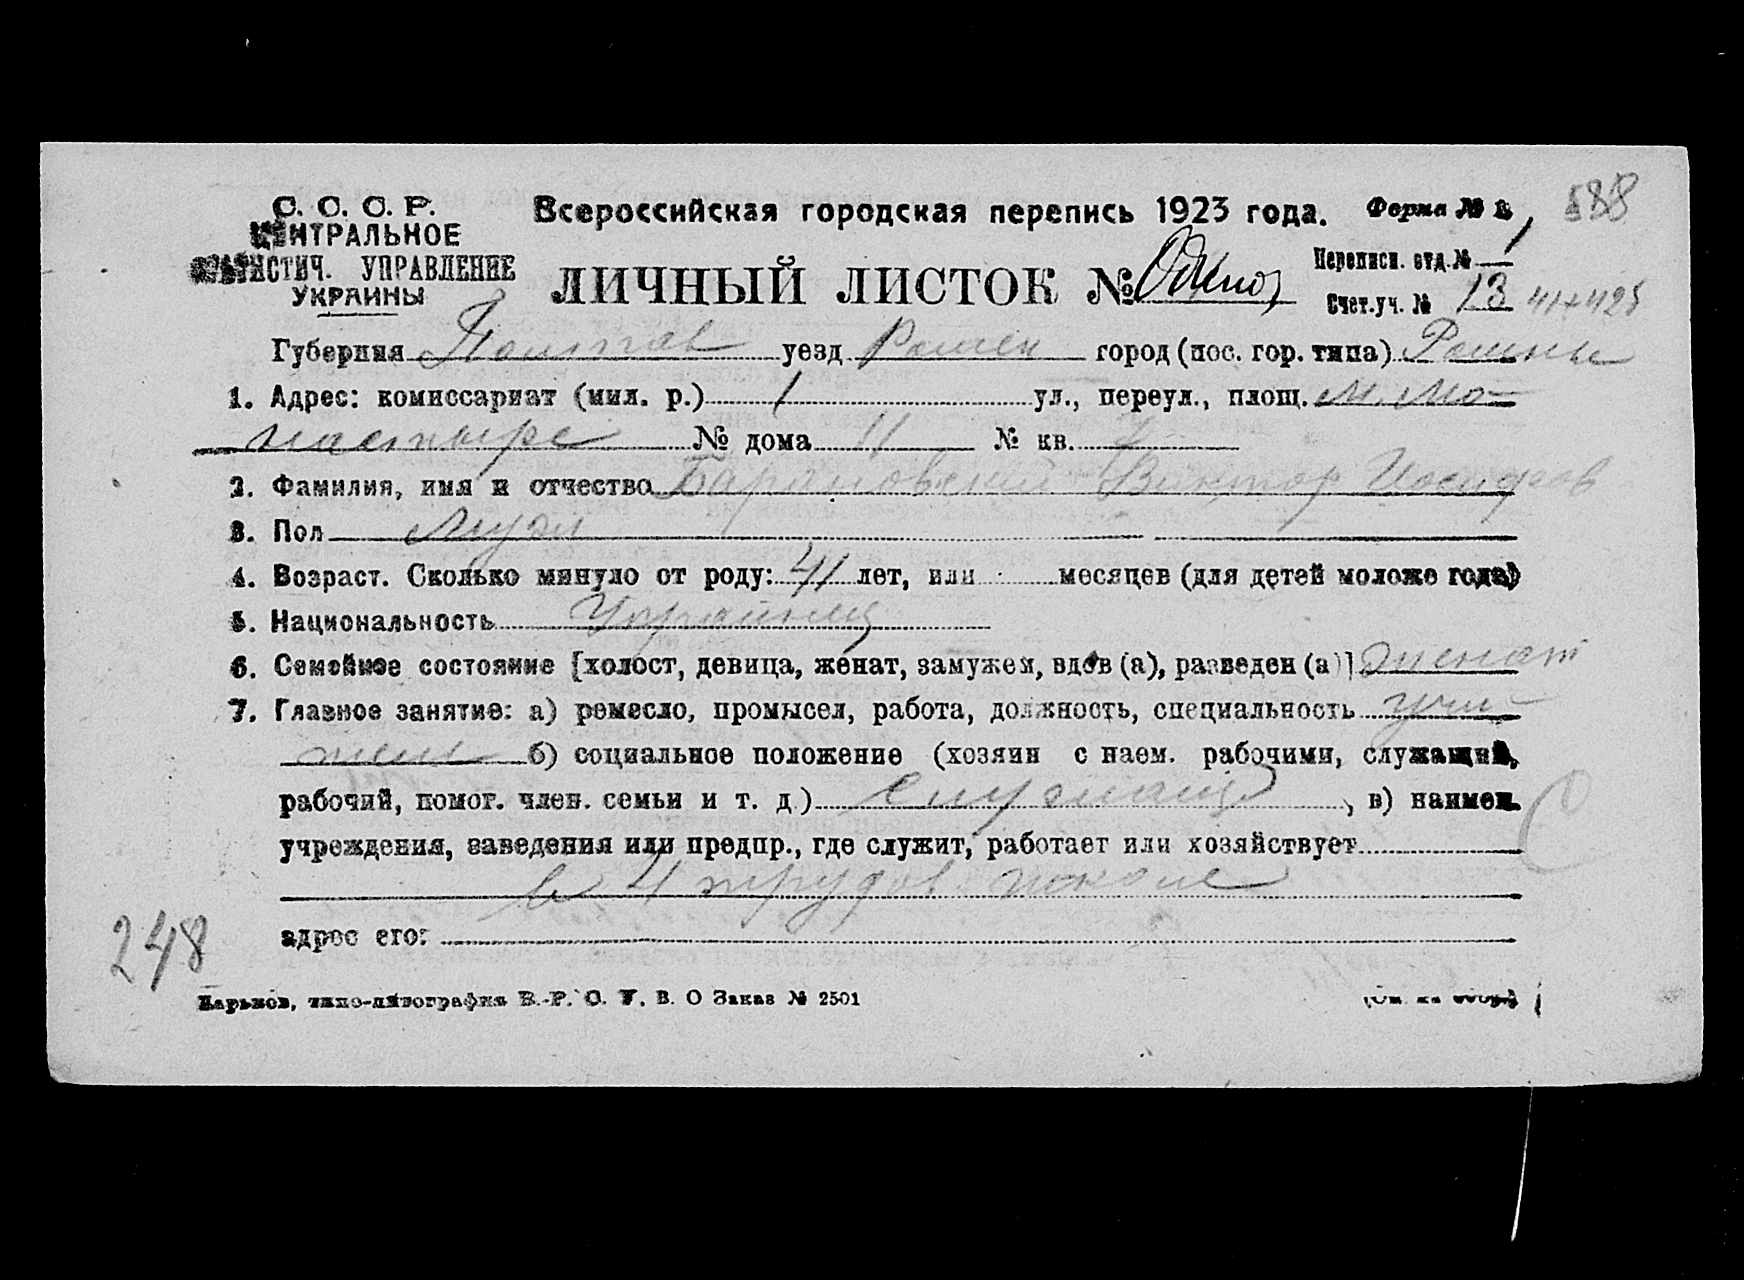 С. С. С. Р.
ЦЕНТРАЛЬНОЕ
СТАТИСТИЧ. УПРАВЛЕНИЕ
УКРАИНЫ
Всероссийская городская перепись 1923 года.
Форма № 2
588
ЛИЧНЫЙ ЛИСТОК №
Переписн. отд. № 1
Счет. уч. № 13
Губерния Полтав уезд Ромен город (пос. гор. типа) Ромны
1. Адрес: комиссариат (мил. р.) 1 ул., переул., площ. М. Мо-
настыре № дома 11 № кв. 2
2. Фамилия, имя и отчество Барановский Виктор Иосифов
3. Пол Муж
4. Возраст. Сколько минуло от роду: 41 лет, или месяцев (для детей моложе года)
5. Национальность Украинец
6. Семейное состояние [холост, девица, женат, замужем, вдов (а), разведен (а)] женат
7. Главное занятие: а) ремесло, промысел, работа, должность, специальность учи-
тель б) социальное положение (хозяин с наем. рабочими, служащий,
рабочий, помог. член. семьи и т. д.) служащ , в) наимен.
учреждения, заведения или предпр., где служит, работает или хозяйствует
в 4 трудов школе
248
адрес его:
Харьков, типо-литография В. Р. С. У. В. О Заказ № 2501